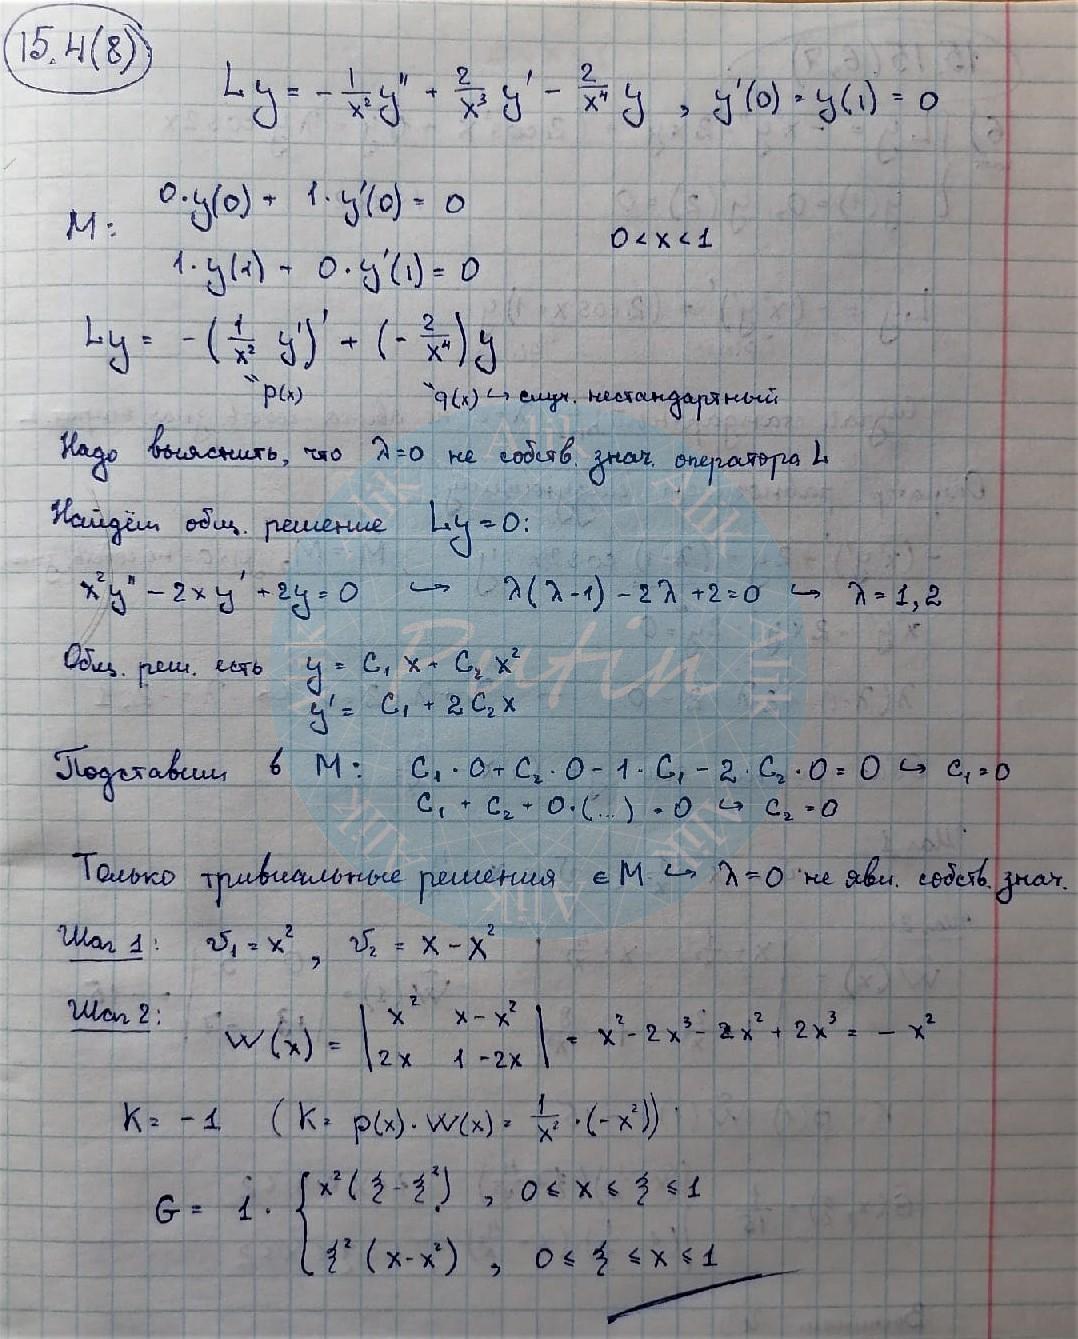 15.4(8)
Ly = -1/x² y'' + 2/x³ y' - 2/x⁴ y , y'(0) = y(1) = 0
0·y(0) + 1·y'(0) = 0
M: 0<x<1
1·y(1) + 0·y'(1) = 0
Ly = -(1/x² y')' + (-2/x⁴)y
"p(x) "q(x) ↪ случ. нестандартный
Надо выяснить, что λ=0 не собств. знач. оператора L
Найдём общ. решение Ly=0:
x²y'' - 2xy' + 2y = 0 ↪ λ(λ-1) - 2λ + 2 = 0 ↪ λ = 1, 2
Общ. реш. есть y = C₁x + C₂x²
y' = C₁ + 2C₂x
Подставим в M: C₁·0 + C₂·0 - 1·C₁ - 2·C₂·0 = 0 ↪ C₁=0
C₁ + C₂ + 0·(...) = 0 ↪ C₂=0
Только тривиальные решения ∈ M ↪ λ=0 не явл. собств. знач.
Шаг 1: v₁ = x² , v₂ = x - x²
Шаг 2: W(x) = | x² x-x² |
| 2x 1-2x | = x² - 2x³ - 2x² + 2x³ = -x²
K = -1 (K = p(x)·W(x) = 1/x²·(-x²))
G = 1· { x²(ξ-ξ²) , 0 ≤ x ≤ ξ ≤ 1
ξ²(x-x²) , 0 ≤ ξ ≤ x ≤ 1
Putin
Alik
Alik
Alik
Alik
Alik
Alik
Alik
Alik